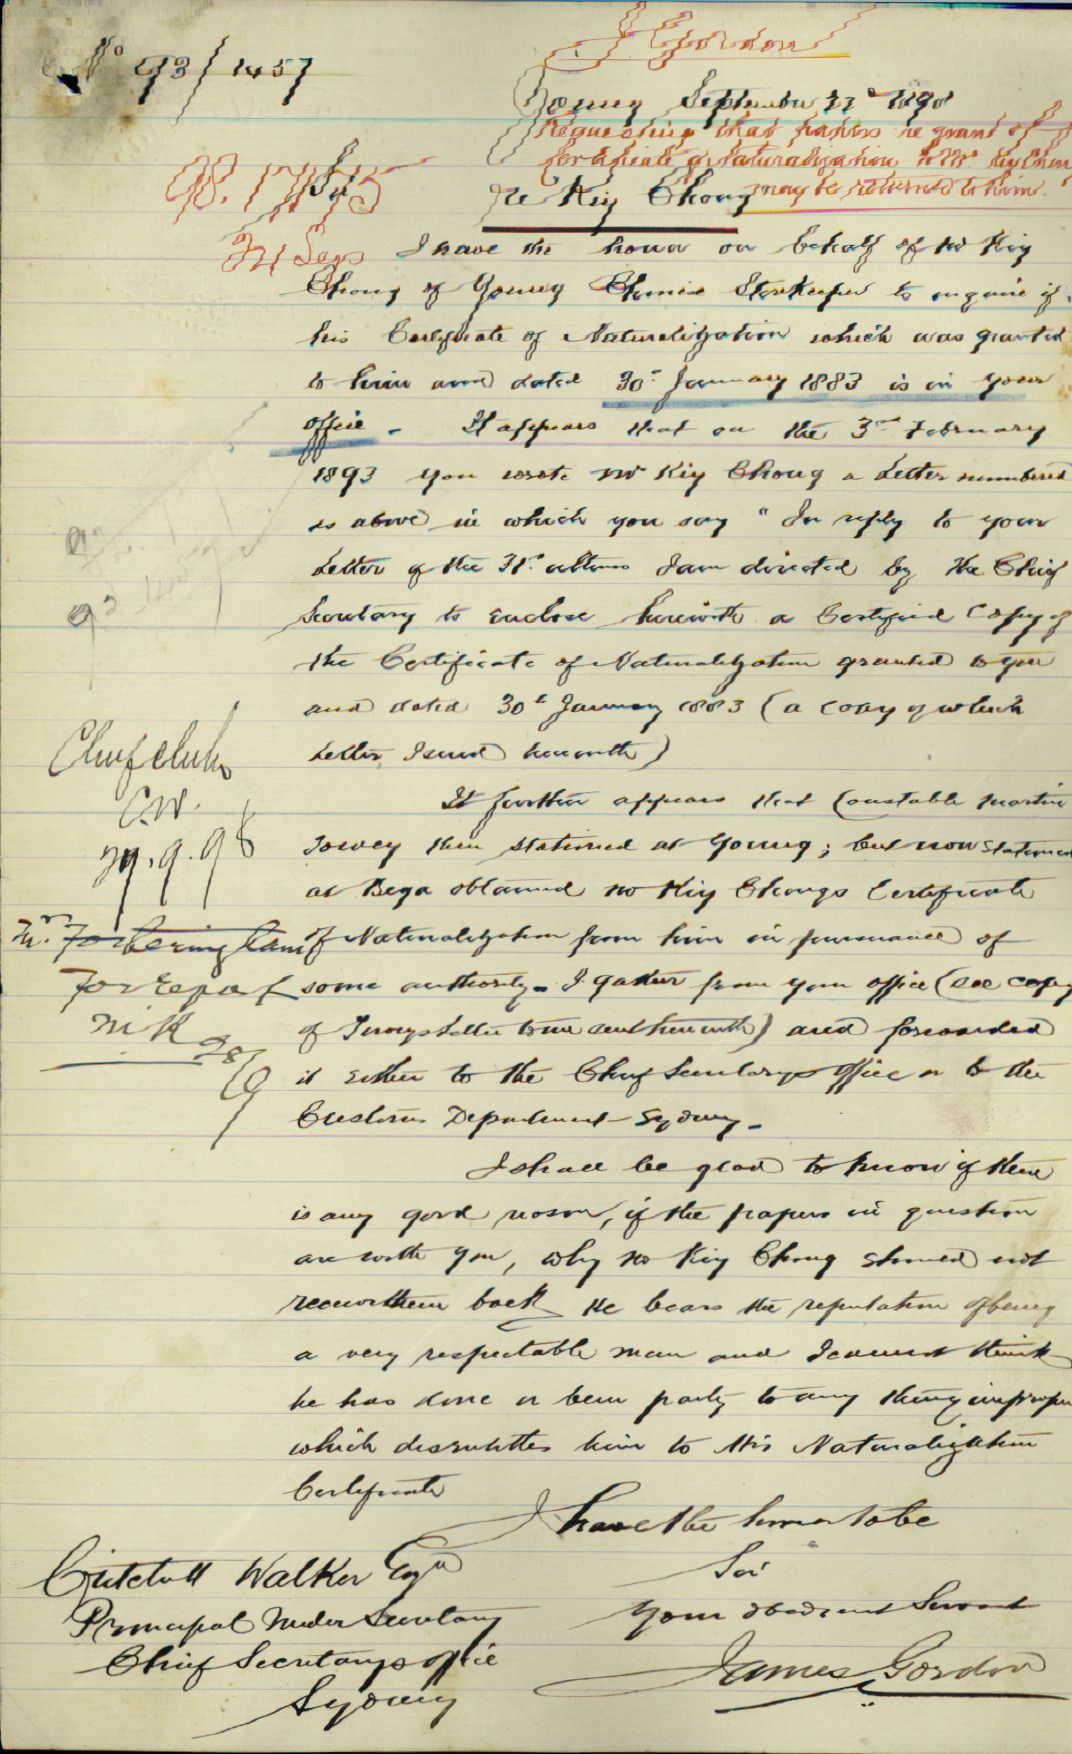 No 93/1457
J Gordon
Young September 22d 1898
Requesting that papers re grant of
Certificate of Naturalization to Mr Kiy Chong
may be returned to him.
98.17115
Sir
re Kiy Chong
24 Sep
I have the honor on behalf of Mr Kiy
Chong of Young Chinese Storekeeper to inquire if
his Certificate of Naturalization which was granted
to him and dated 30th January 1883 is in your
office - It appears that on the 3rd February
1893 you wrote Mr Kiy Chong a Letter numbered
as above in which you say "In reply to your
Letter of the 31st ultimo I am directed by the Chief
Secretary to enclose herewith a Certified Copy of
the Certificate of Naturalization granted to you
and dated 30th January 1883 (a copy of which
Letter I send herewith)
It further appears that Constable Martin
Towey then stationed at Young; but now stationed
at Bega obtained Mr Kiy Chongs Certificate
of Naturalization from him in pursuance of
some authority - I gather from your office (see copy
of Toweys Letter to me sent herewith) and forwarded
it either to the Chief Secretarys Office or to the
Customs Department Sydney -
I shall be glad to know if there
is any good reason, if the papers in question
are with you, why Mr Kiy Chong should not
receive them back He bears the reputation of being
a very respectable man and I cannot think
he has done or been party to any thing improper
which disentitles him to this Naturalization
Certificate
I have the honor to be
Sir
Your obedient Servant
James Gordon
Critchett Walker Esqre
Principal Under Secretary
Chief Secretarys office
Sydney
Chief clerk
C.W.
29.9.98
Mr. Fotheringham
For repart
28/9